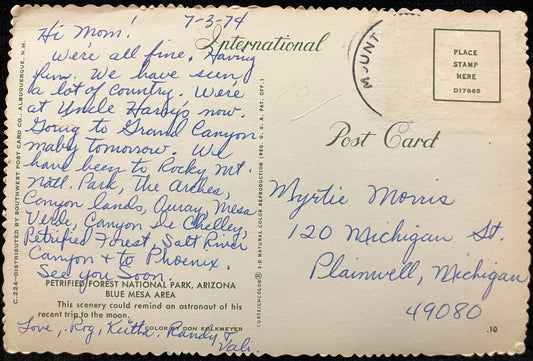 7-3-74
Hi Mom!
We're all fine. Having
fun. We have seen
a lot of country. We're
at Uncle Harry's now.
Going to Grand Canyon
maby tomorrow. We
have been to Rocky Mt.
Natl. Park, The Arches,
Canyon lands, Ouray, Mesa
Verde, Canyon de Chelley,
Petrified Forest, Salt River
Canyon & to Phoenix.
See you Soon.
Love, Rog, Keitha, Randy &
International
Post Card
MOUNT
PLACE
STAMP
HERE
D17868
Myrtie Morris
120 Michigan St.
Plainwell, Michigan
49080
PETRIFIED FOREST NATIONAL PARK, ARIZONA
BLUE MESA AREA
This scenery could remind an astronaut of his
recent trip to the moon.
COLOR BY DON KOLKMEYER
C.224—DISTRIBUTED BY SOUTHWEST POST CARD CO., ALBUQUERQUE, N.M.
CURTEICHCOLOR® 3-D NATURAL COLOR REPRODUCTION (REG. U.S.A. PAT. OFF.)
.10